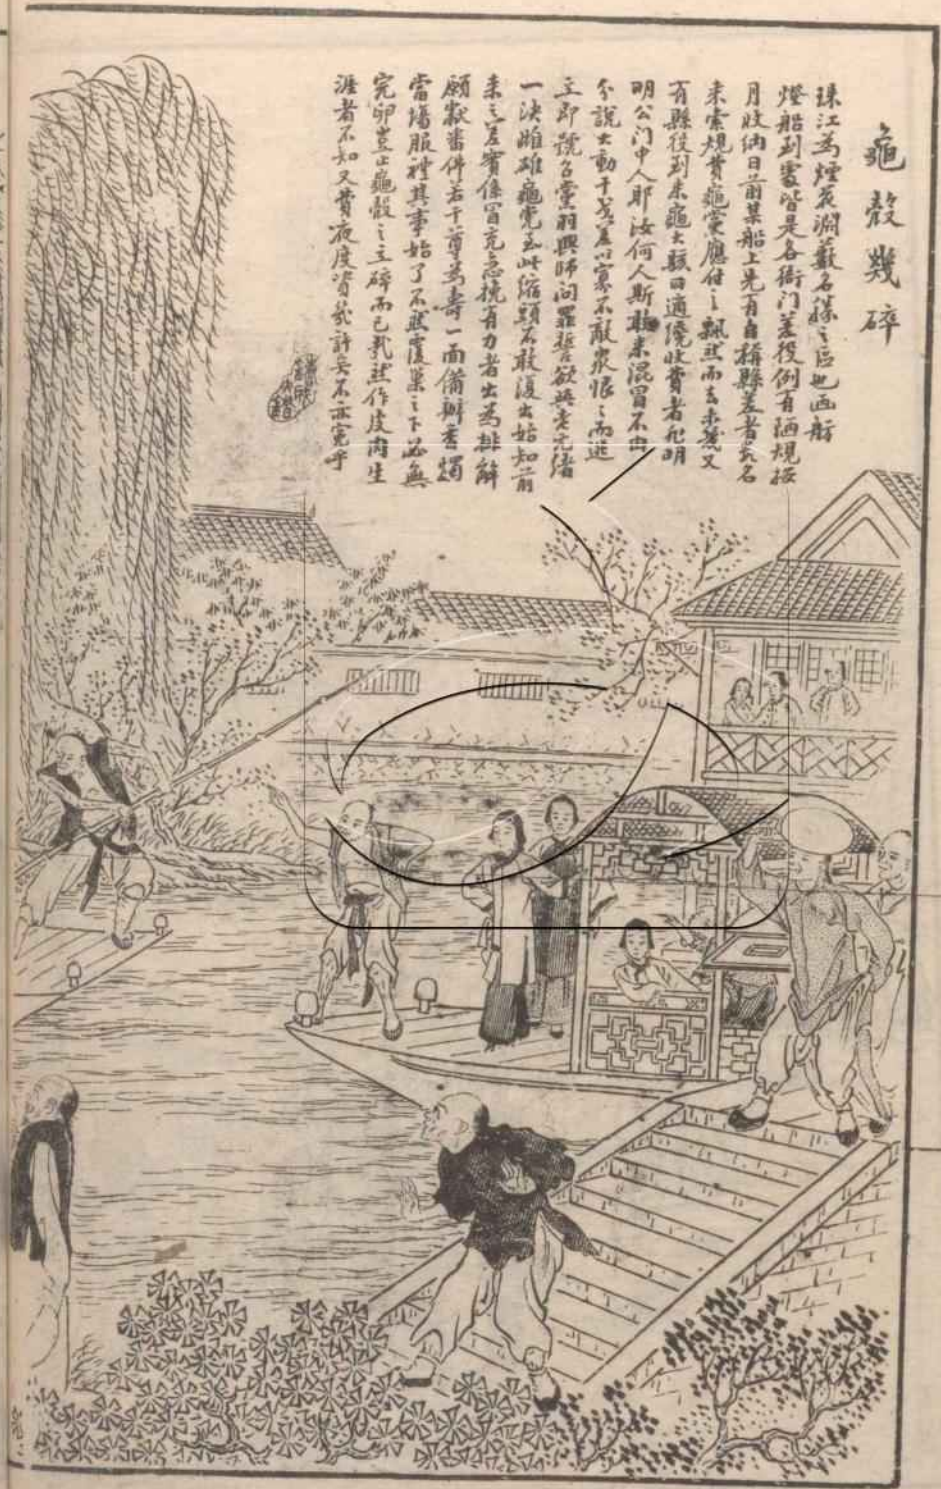 龜殼幾碎
珠江為煙花淵藪名勝之區也画舫
燈船到處皆是各衙門差役例有陋規按
月收納日前某船上先有自稱縣差者幾名
來索規費龜黨應付之飄然而去未幾又
有縣役到来龜大駭曰適纔收費者非明
明公门中人耶汝何人斯敢来混冒不由
分說大動干戈差以寡不敵衆恨之而逃
立即號召黨羽興師问罪誓欲與老元緒
一決雌雄龜党至此縮頸不敢復出始知前
来之差實係冒充急挽有力者出為排解
願獻番佛若干尊為壽一面備辦香燭
當塲服禮其事始了不然覆巢之下必無
完卵豈止龜殼之立碎而已哉然作皮肉生
涯者不知又費夜度資幾許矣不亦寃乎